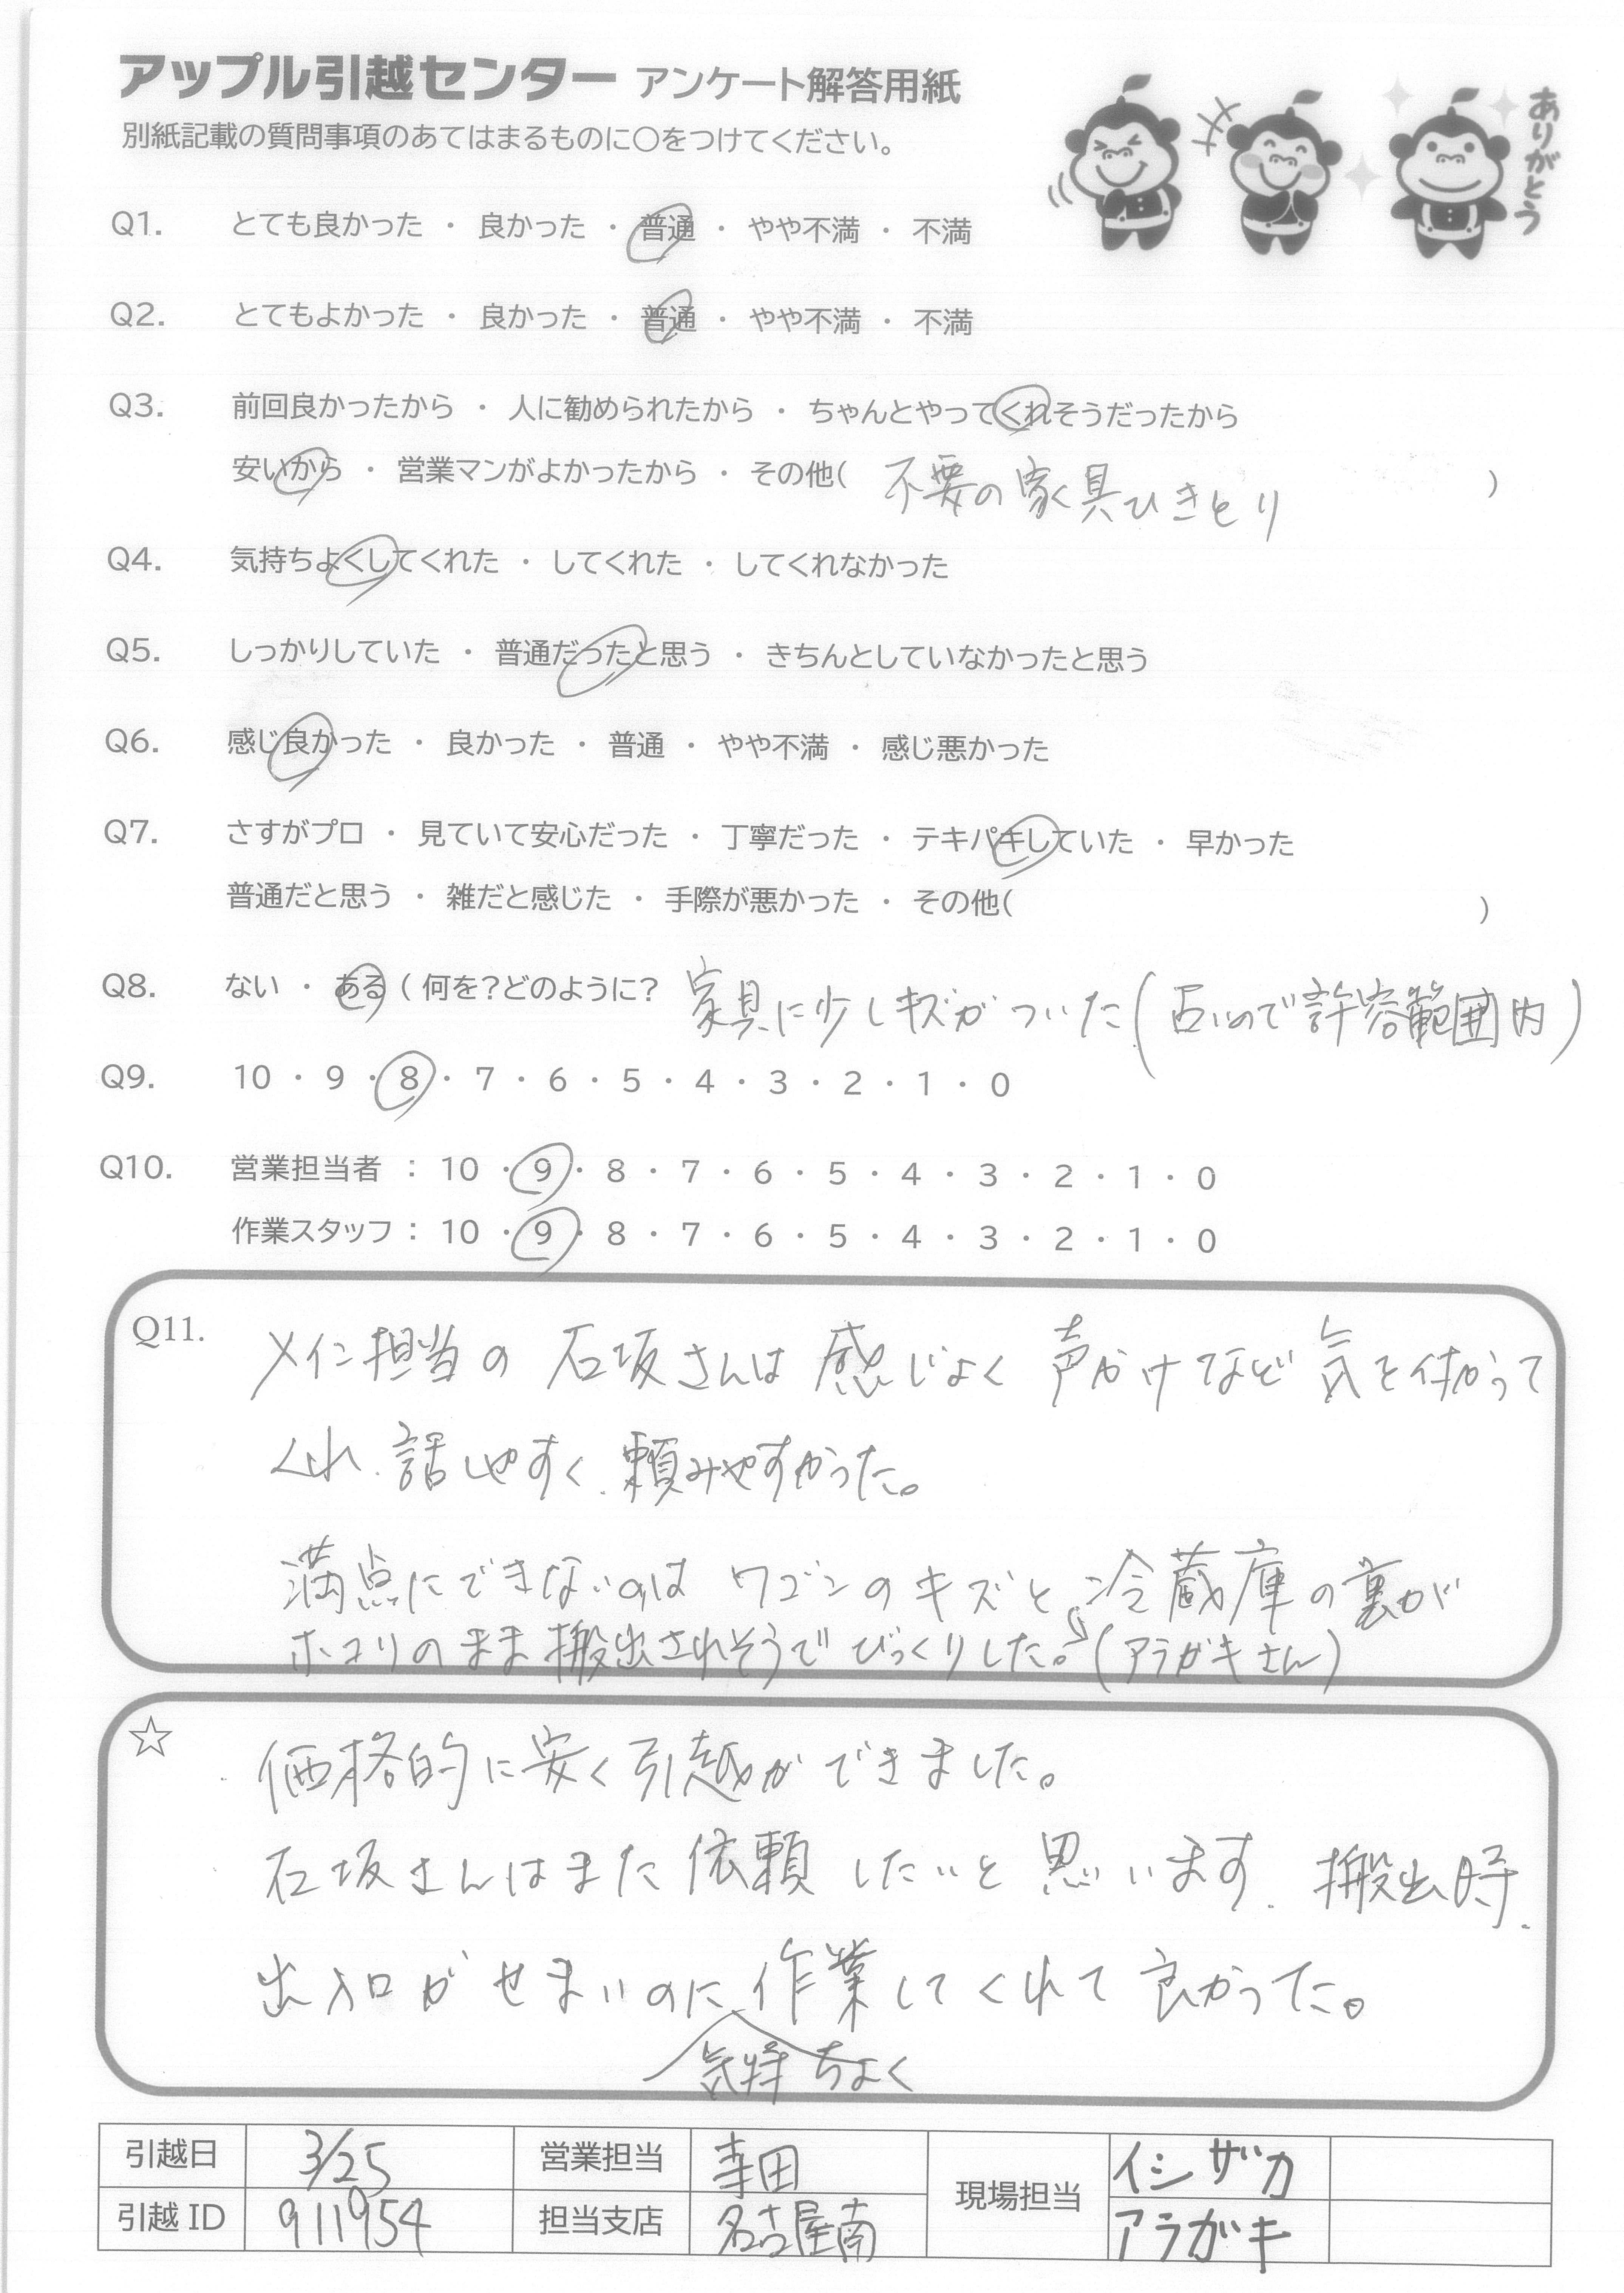 アップル引越センター アンケート解答用紙
別紙記載の質問事項のあてはまるものに○をつけてください。
ありがとう
Q1. とても良かった ・ 良かった ・ 普通 ・ やや不満 ・ 不満
Q2. とてもよかった ・ 良かった ・ 普通 ・ やや不満 ・ 不満
Q3. 前回良かったから ・ 人に勧められたから ・ ちゃんとやってくれそうだったから
安いから ・ 営業マンがよかったから ・ その他( 不要の家具ひきとり )
Q4. 気持ちよくしてくれた ・ してくれた ・ してくれなかった
Q5. しっかりしていた ・ 普通だったと思う ・ きちんとしていなかったと思う
Q6. 感じ良かった ・ 良かった ・ 普通 ・ やや不満 ・ 感じ悪かった
Q7. さすがプロ ・ 見ていて安心だった ・ 丁寧だった ・ テキパキしていた ・ 早かった
普通だと思う ・ 雑だと感じた ・ 手際が悪かった ・ その他( )
Q8. ない ・ ある ( 何を？どのように？ 家具に少しキズがついた(古いので許容範囲内)
Q9. 10 ・ 9 ・ 8 ・ 7 ・ 6 ・ 5 ・ 4 ・ 3 ・ 2 ・ 1 ・ 0
Q10. 営業担当者 ： 10 ・ 9 ・ 8 ・ 7 ・ 6 ・ 5 ・ 4 ・ 3 ・ 2 ・ 1 ・ 0
作業スタッフ： 10 ・ 9 ・ 8 ・ 7 ・ 6 ・ 5 ・ 4 ・ 3 ・ 2 ・ 1 ・ 0
Q11. メイン担当の 石坂さんは 感じよく 声かけなど 気を付かって
くれ、話しやすく、頼みやすかった。
満点にできないのは ワゴンのキズと 冷蔵庫の裏が
ホコリのまま搬出されそうで びっくりした。(アラガキさん)
☆ 価格的に安く引越ができました。
石坂さんはまた依頼したいと思います、搬出時、
出入口がせまいのに作業してくれて良かった。
気持ちよく
引越日 3/25 営業担当 寺田 現場担当 イシザカ
引越 ID 911954 担当支店 名古屋南 アラガキ